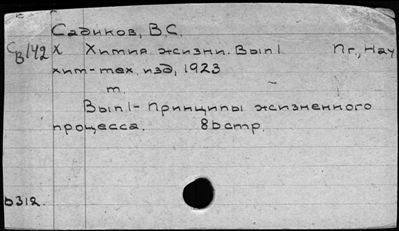 Садиков, В.С.
СВ142 X Химия жизни. Вып I Пг., Нау
хим-тех. изд, 1923
т.
Вып I - Принципы жизненного
процесса. 86 стр.
6312.